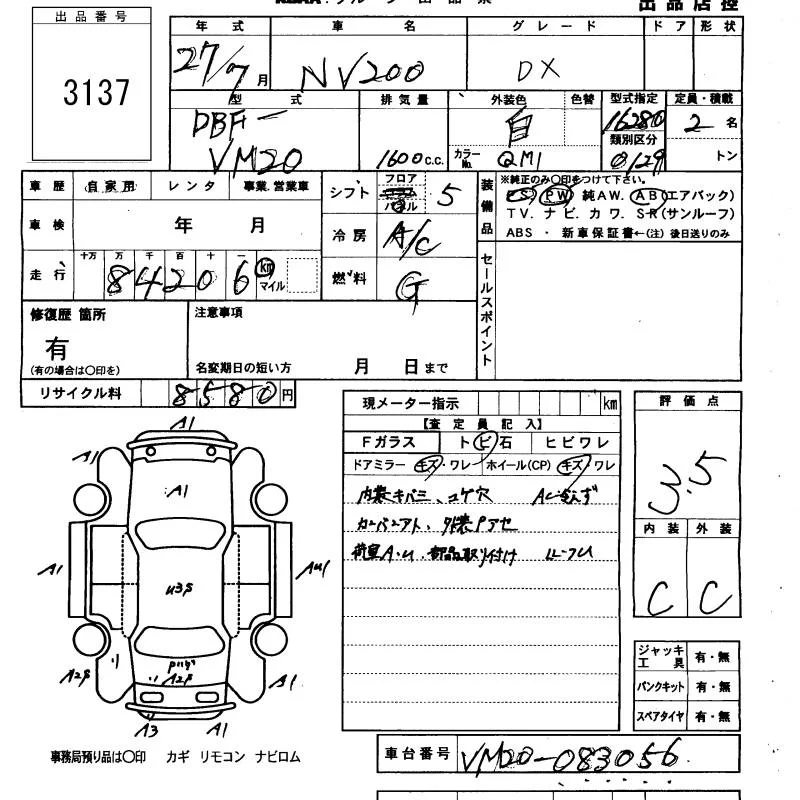 出品番号
3137
出品店控
年式 車名 グレード ドア 形状
27/7月 NV200 DX
型式 排気量 外装色 色替 型式指定 定員・積載
DBF-
VM20
1600c.c.
カラーNo.
白
QM1
16280
類別区分
0129
2名
トン
車歴 自家用 レンタ 事業、営業車
車検 年 月
走行 十万 万 千 百 十 一
84206 km
マイル
シフト フロア コラム パネル 5
冷房 A/C
燃料 G
装備品
※純正のみ○印をつけて下さい。
PS PW 純AW. AB(エアバック)
TV. ナビ. カワ. SR(サンルーフ)
ABS ・ 新車保証書←(注) 後日送りのみ
セールスポイント
修復歴 箇所
有
(有の場合は○印を)
注意事項
名変期日の短い方 月 日まで
リサイクル料 8580円
現メーター指示 km
【査定員記入】
Fガラス トビ石 ヒビワレ
ドアミラー キズ・ワレ ホイール(CP) キズ・ワレ
内装キバミ、コゲ穴
カーバーアト、外装Pアセ
荷室A.U、部品取り付け
評価点
3.5
内装 外装
C C
A1
A1
A1
A1
A1
U3S
AU1
A2S
A2S
A1
A3
A1
ジャッキ工具 有・無
パンクキット 有・無
スペアタイヤ 有・無
事務局預り品は○印 カギ リモコン ナビロム
車台番号 VM20-083056